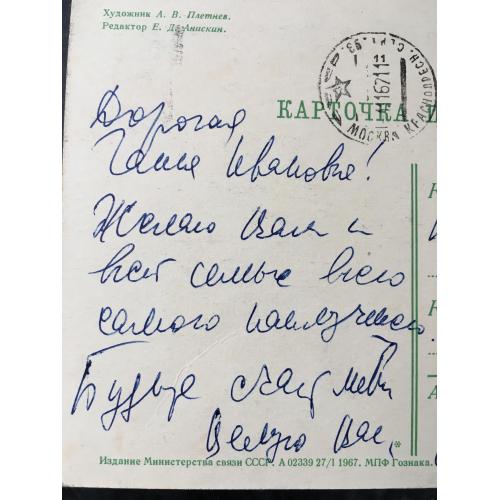 Художник А. В. Плетнев.
Редактор Е. Д. Анискин.
КАРТОЧКА
МОСКВА КРАСНОПРЕСН.
Дорогая
Ивановна!
Желаю Вам и
всей семье всего
самого наилучшего.
Будьте счастливы
Целую Вас,
*
Издание Министерства связи СССР. А 02339 27/I 1967. МПФ Гознака.